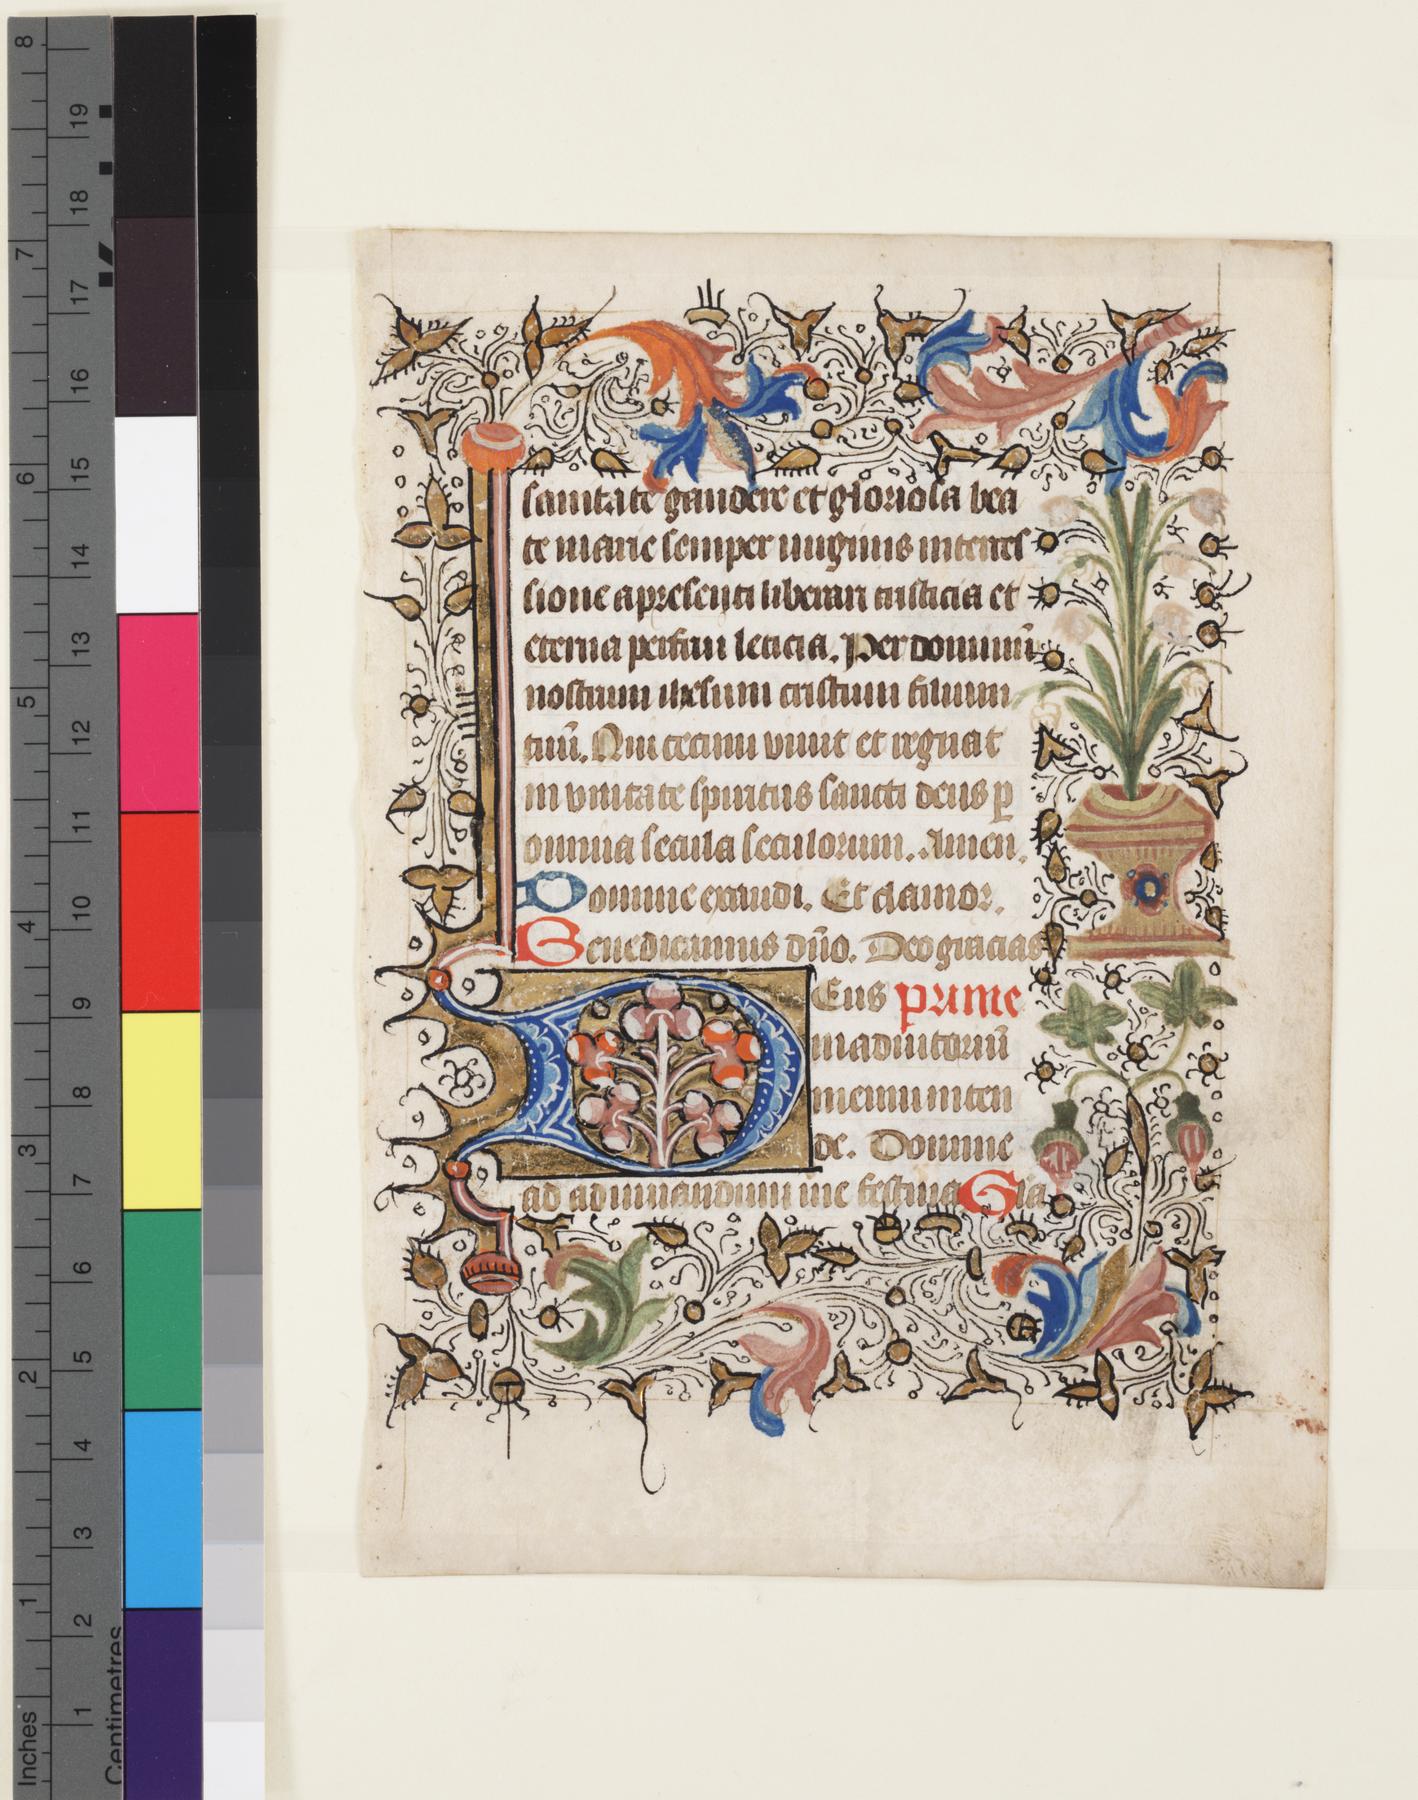 sanitate gaudere et gloriosa bea
te marie semper uirginis interces
sione a presenti liberari tristicia et
eterna perfrui leticia. Per dominũ
nostrum ihesum cristum filium
tuũ. Qui tecum viuit et regnat
in vnitate spiritus sancti deus ꝑ
omnia secula seculorum. Amen.
Domine exaudi. Et clamor.
Benedicamus dño. Deo gracias
DEus prime
in adiutoriũ
meum inten
de. Domine
ad adiuuandum me festina Gla
Inches 1 2 3 4 5 6 7 8
Centimetres 1 2 3 4 5 6 7 8 9 10 11 12 13 14 15 16 17 18 19